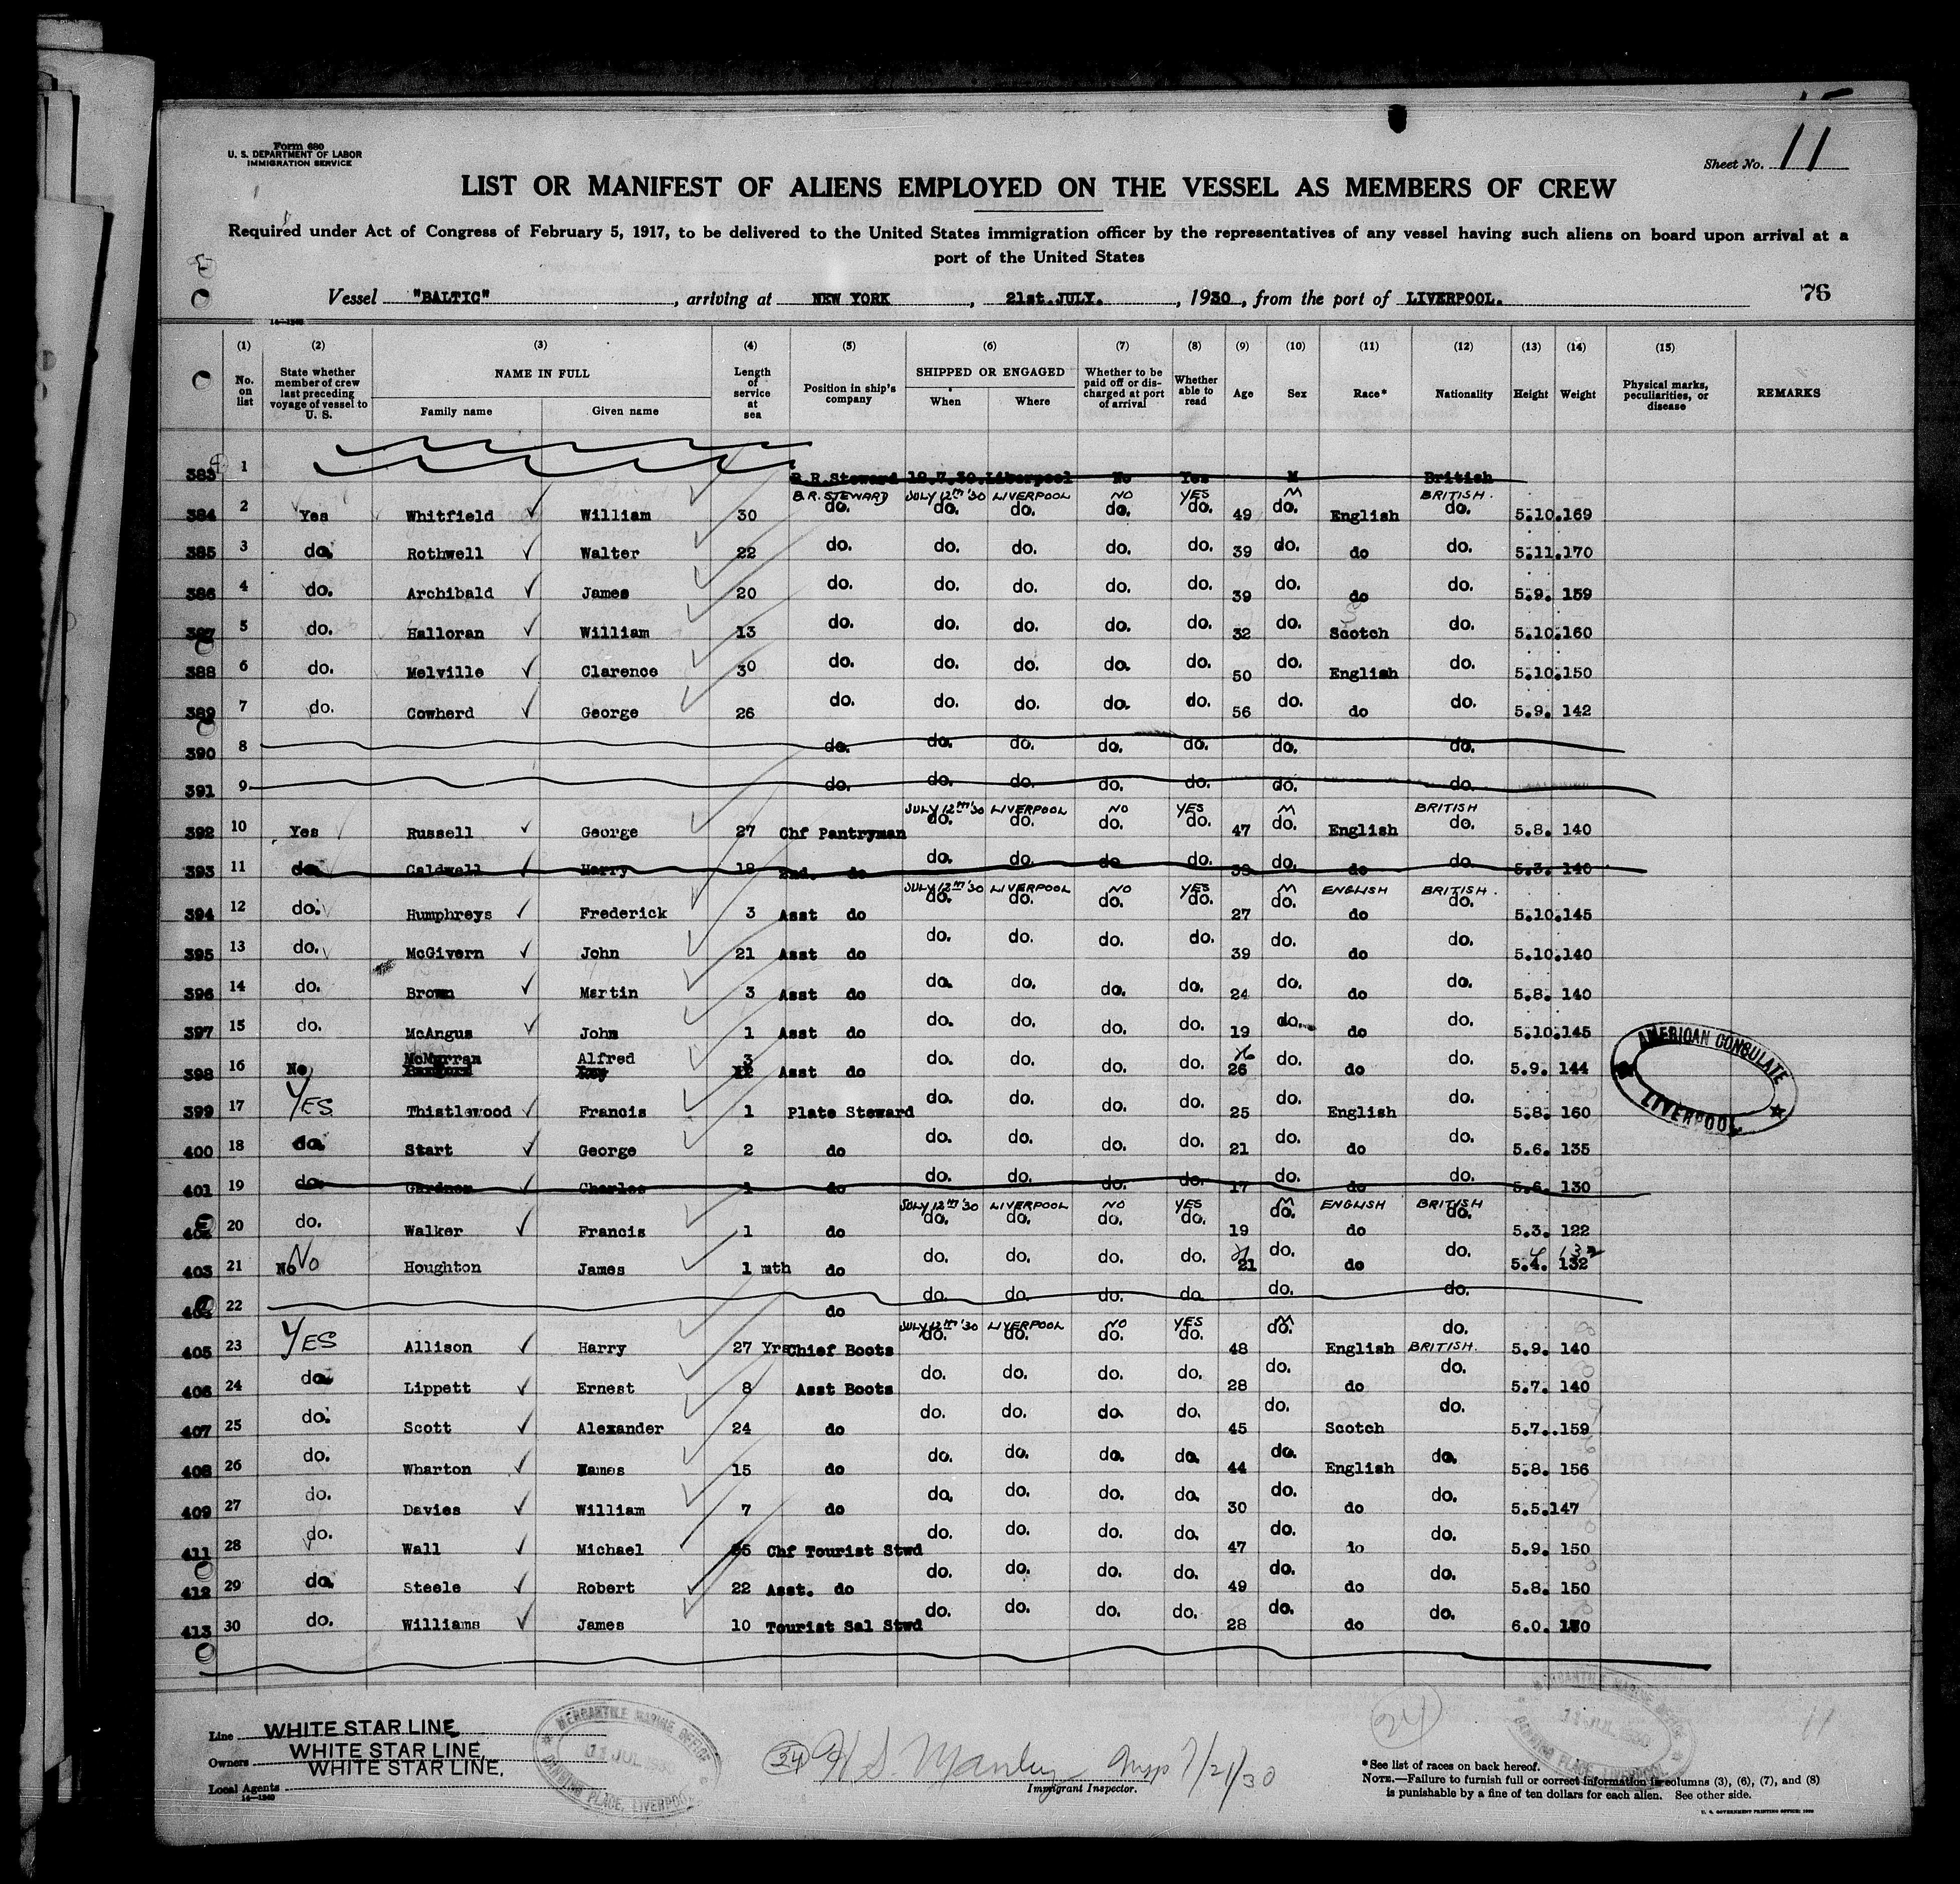 Form 680
U. S. DEPARTMENT OF LABOR
IMMIGRATION SERVICE
Sheet No. 11
LIST OR MANIFEST OF ALIENS EMPLOYED ON THE VESSEL AS MEMBERS OF CREW
Required under Act of Congress of February 5, 1917, to be delivered to the United States immigration officer by the representatives of any vessel having such aliens on board upon arrival at a
port of the United States
Vessel "BALTIC", arriving at NEW YORK, 21st.JULY., 1930, from the port of LIVERPOOL. 76
(1) (2) (3) (4) (5) (6) (7) (8) (9) (10) (11) (12) (13) (14) (15)
No. on list State whether member of crew last preceding voyage of vessel to U. S. NAME IN FULL Family name Given name Length of service at sea Position in ship's company SHIPPED OR ENGAGED When Where Whether to be paid off or discharged at port of arrival Whether able to read Age Sex Race* Nationality Height Weight Physical marks, peculiarities, or disease REMARKS
383 1 B.R.Steward 12.7.30.Liverpool No Yes M British
B.R. STEWARD JULY 12th '30 LIVERPOOL NO YES M BRITISH.
384 2 Yes Whitfield William 30 do. do. do. do. do. 49 do. English do. 5.10.169
385 3 do. Rothwell Walter 22 do. do. do. do. do. 39 do. do do. 5.11.170
386 4 do. Archibald James 20 do. do. do. do. do. 39 do. do do. 5.9. 159
387 5 do. Halloran William 13 do. do. do. do. do. 32 do. Scotch do. 5.10.160
388 6 do. Melville Clarence 30 do. do. do. do. do. 50 do. English do. 5.10.150
389 7 do. Cowherd George 26 do. do. do. do. do. 56 do. do do. 5.9. 142
390 8 do. do. do. do. do. do. do.
391 9 do. do. do. do. do. do. do.
JULY 12th '30 LIVERPOOL NO YES M BRITISH
392 10 Yes Russell George 27 Chf Pantryman do. do. do. do. 47 do. English do. 5.8. 140
393 11 do. Caldwell Harry 18 2nd. do do. do. do do. 39 do. do do. 5.3. 140
JULY 12th '30 LIVERPOOL NO YES M ENGLISH BRITISH.
394 12 do. Humphreys Frederick 3 Asst do do. do. do. do. 27 do. do do. 5.10.145
395 13 do. McGivern John 21 Asst do do. do. do. do. 39 do. do do. 5.10.140
396 14 do. Brown Martin 3 Asst do do. do. do. do. 24 do. do do. 5.8. 140
397 15 do. McAngus John 1 Asst do do. do. do. do. 19 do. do do. 5.10.145
398 16 No McMurran Alfred 3 Asst do do. do. do. do. 26 do. do do. 5.9. 144
399 17 YES Thistlewood Francis 1 Plate Steward do. do. do. do. 25 do. English do. 5.8. 160
AMERICAN CONSULATE LIVERPOOL
400 18 do. Start George 2 do do. do. do. do. 21 do. do do. 5.6. 135
401 19 do. Gardner Charles 1 do do. do. do. do. 17 do. do do. 5.6. 130
JULY 12th '30 LIVERPOOL NO YES M ENGLISH BRITISH
402 20 do. Walker Francis 1 do do. do. do. do. 19 do. do do. 5.3. 122
403 21 No No Houghton James 1 mth do do. do. do. do. 21 do. do do. 5.4. 132
22 do do. do. do. do. do. do.
JULY 12th '30 LIVERPOOL NO YES M
405 23 YES Allison Harry 27 Yrs Chief Boots do. do. do. do. 48 do. English do. BRITISH. 5.9. 140
406 24 do. Lippett Ernest 8 Asst Boots do. do. do. do. 28 do. do do. 5.7. 140
407 25 do. Scott Alexander 24 do do. do. do. do. 45 do. Scotch do. 5.7..159
408 26 do. Wharton James 15 do do. do. do. do. 44 do. English do. 5.8. 156
409 27 do. Davies William 7 do do. do. do. do. 30 do. do do. 5.5.147
411 28 do. Wall Michael Chf Tourist Stwd do. do. do. do. 47 do. do do. 5.9. 150
412 29 do. Steele Robert 22 Asst. do do. do. do. do. 49 do. do do. 5.8. 150
413 30 do. Williams James 10 Tourist Sal Stwd do. do. do. do. 28 do. do do. 6.0.
Line WHITE STAR LINE
Owners WHITE STAR LINE,
Local Agents WHITE STAR LINE,
14—1240
MERCANTILE MARINE OFFICE 11 JUL 1930 CANNING PLACE, LIVERPOOL
24 H. S. Manley Insp 7/21/30
Immigrant Inspector.
24
MERCANTILE MARINE OFFICE 11 JUL 1930 CANNING PLACE, LIVERPOOL
11
*See list of races on back hereof.
NOTE.—Failure to furnish full or correct information in columns (3), (6), (7), and (8)
is punishable by a fine of ten dollars for each alien. See other side.
U. S. GOVERNMENT PRINTING OFFICE: